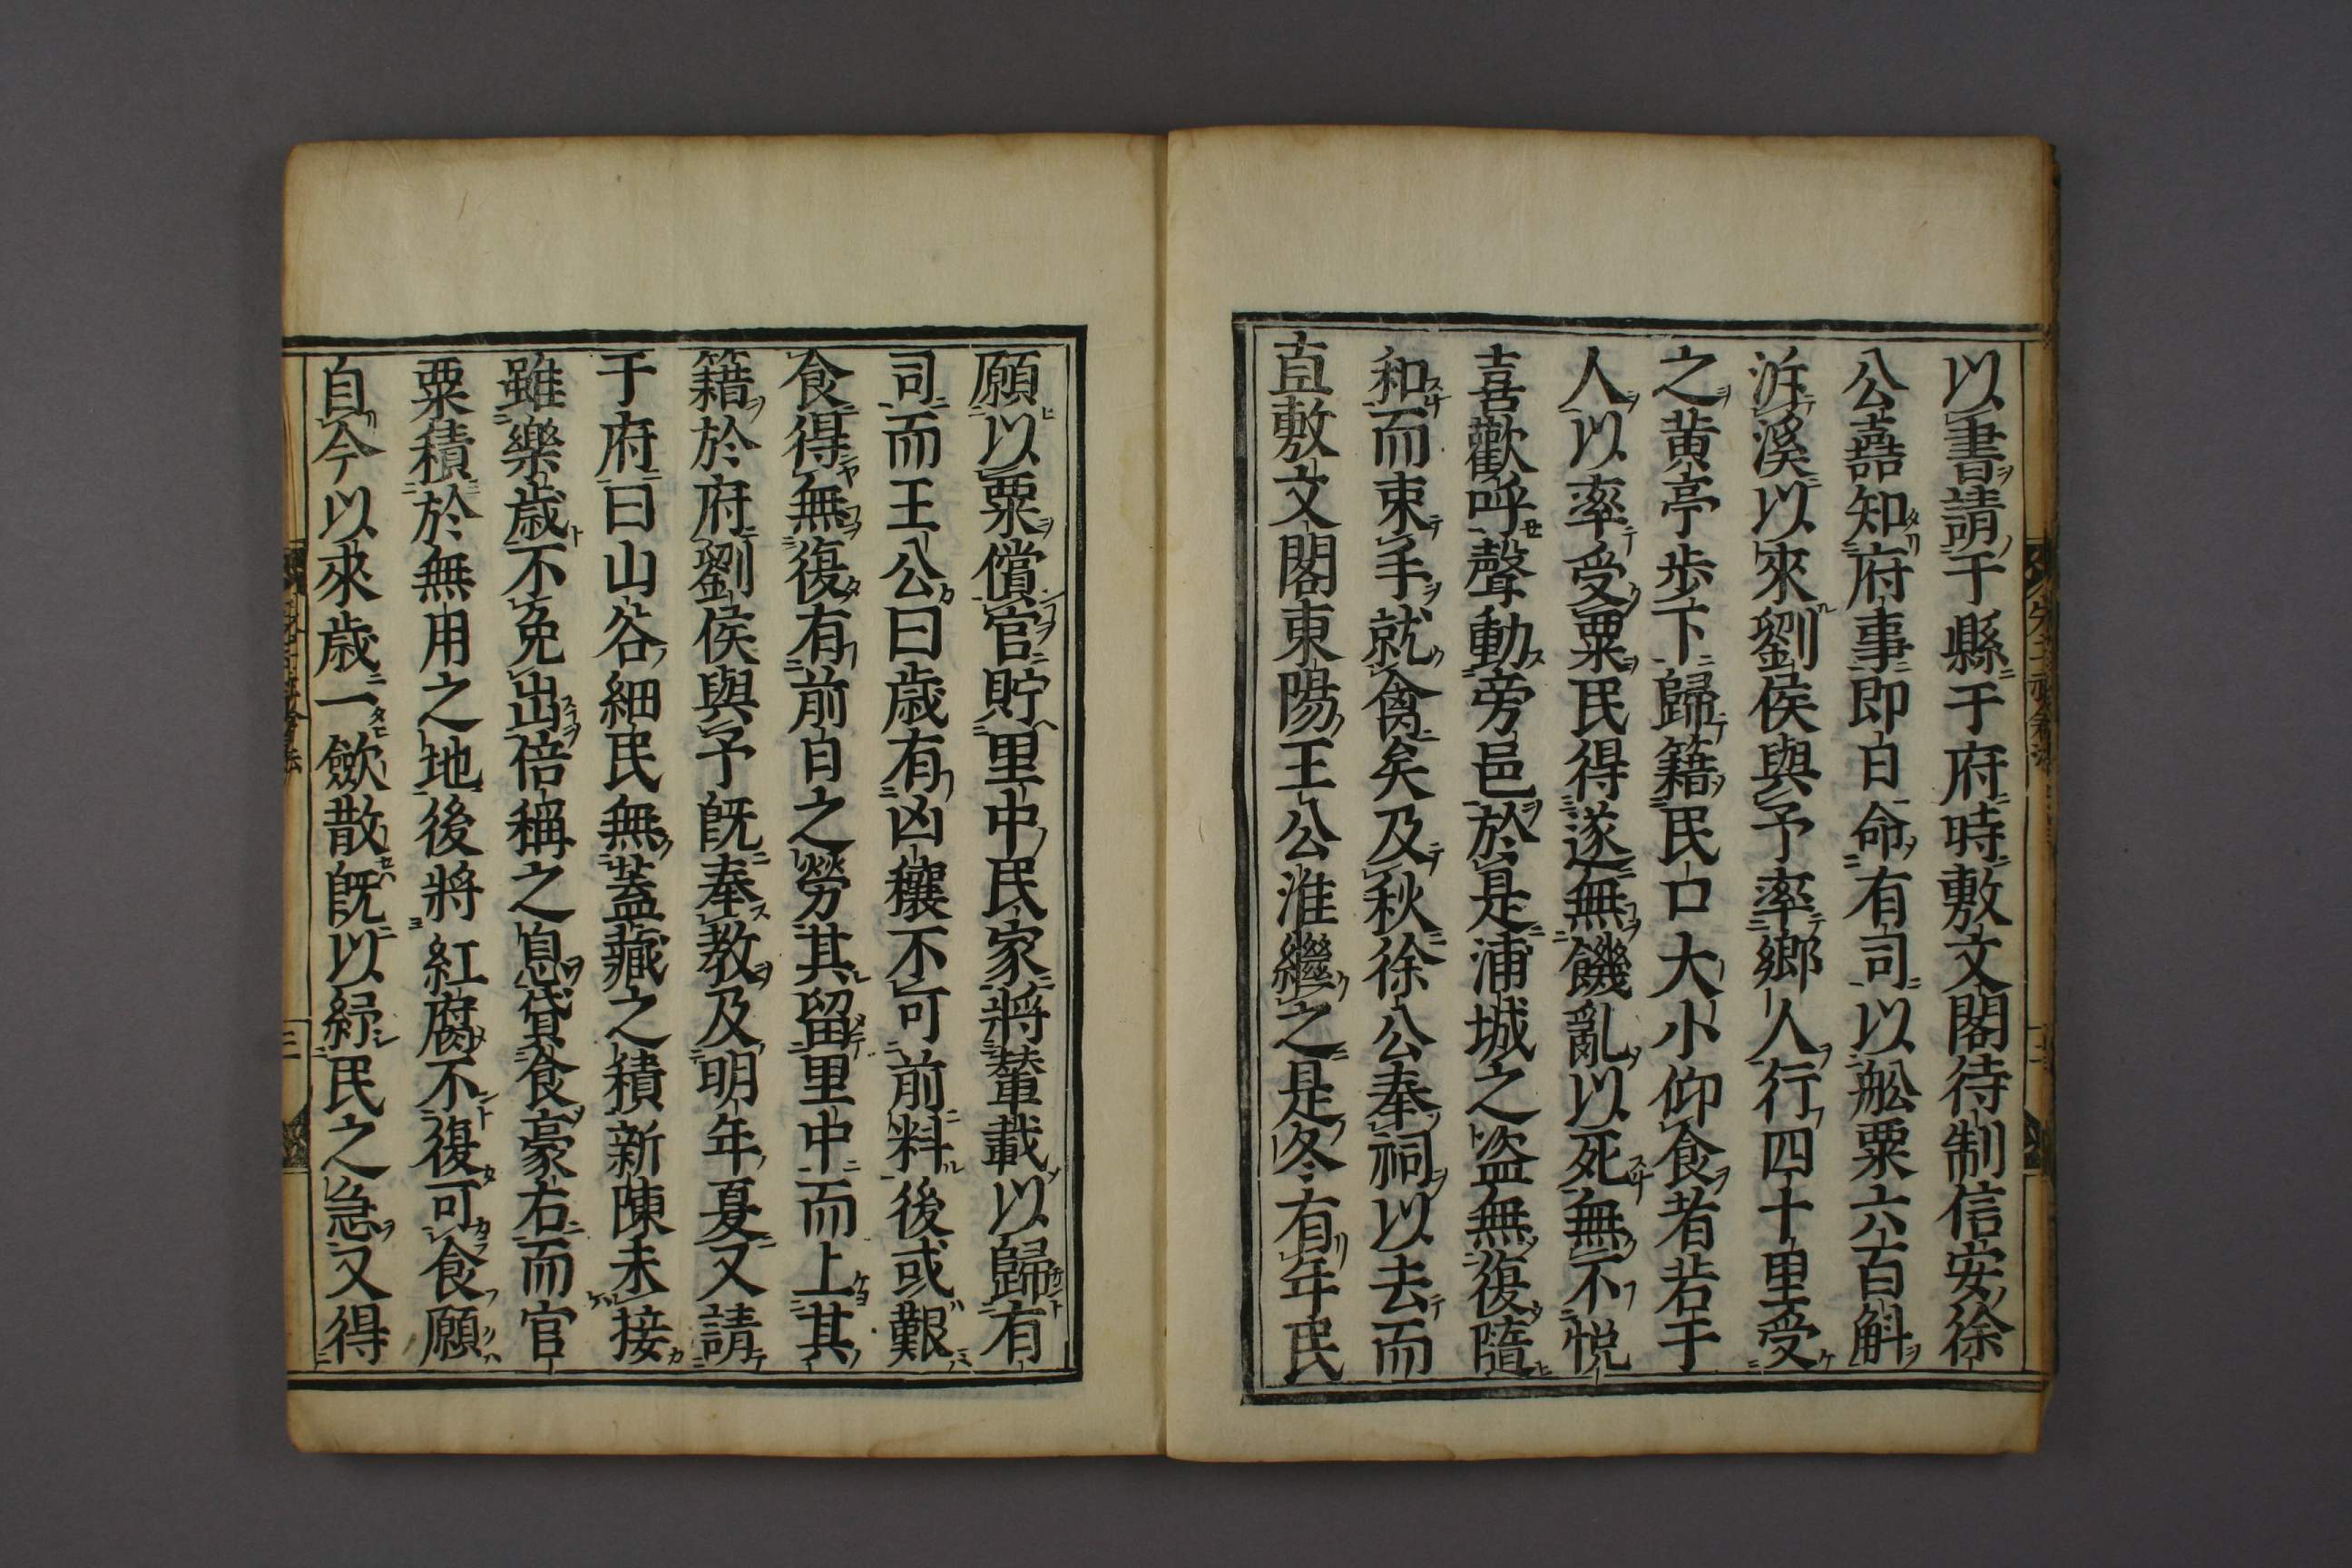 以書請于縣于府時敷文閣待制信安徐
公嚞知府事即日命有司以舩粟六百斛
泝溪以來劉侯與予率鄉人行四十里受
之黄亭歩下歸籍民口大小仰食者若干
人以率受粟民得遂無饑亂以死無不悦
喜歡呼聲動旁邑於是浦城之盗無復隨
和而束手就禽矣及秋徐公奉祠以去而
直敷文閣東陽王公淮繼之是冬有年民
願以粟償官貯里中民家將輦載以歸有
司而王公曰歳有凶穰不可前料後或艱
食得無復有前日之勞其留里中而上其
籍於府劉侯與予既奉教及明年夏又請
于府曰山谷細民無蓋藏之積新陳未接
雖樂歳不免出倍稱之息貸食豪右而官
粟積於無用之地後將紅腐不復可食願
自今以來歳一歛散既以紓民之急又得
三